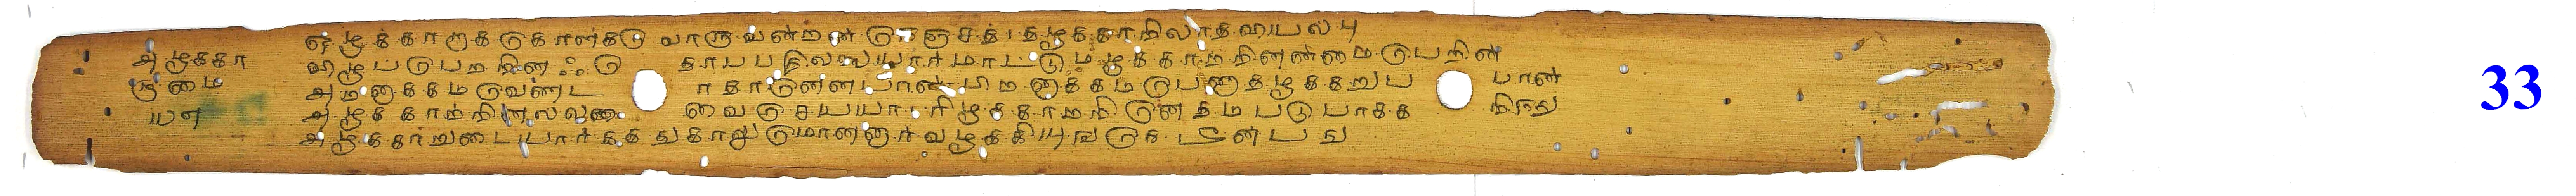 அழுககா
றாமை
ஒழுக்காறாகக்கொள்கவொருவன்றன்னெஞ்சத்தழுக்காறிலாதவியல்பு
விழுப்பெற்றின்ஃதொப்பதில்லையார்மாட்டுமழுக்காற்றினன்மைபெறின்
அறனாக்கம்வெண்டாதானென்பான்பிறனாக்கம்பெணாதழுக்கறுப்பான்
அழுக்காற்றினல்லவைசெய்யாரிழுக்காற்றினெதம்படுபாக்கறிந்து
அழுக்காறுடையார்க்கதுசாலுமொன்னார்வழுக்கியுங்கெடீன்பது
33